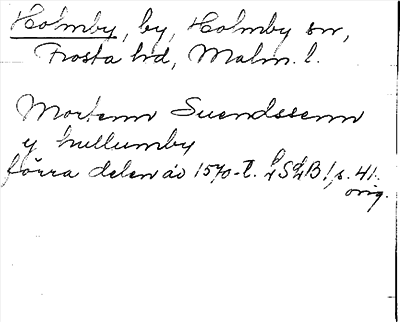 Holmby, by, Holmby sn,
Frosta hd, Malm. l.
Mortenn Suendssenn
y hullumby
förra delen av 1570-t. LSLB 1, s. 41.
orig.